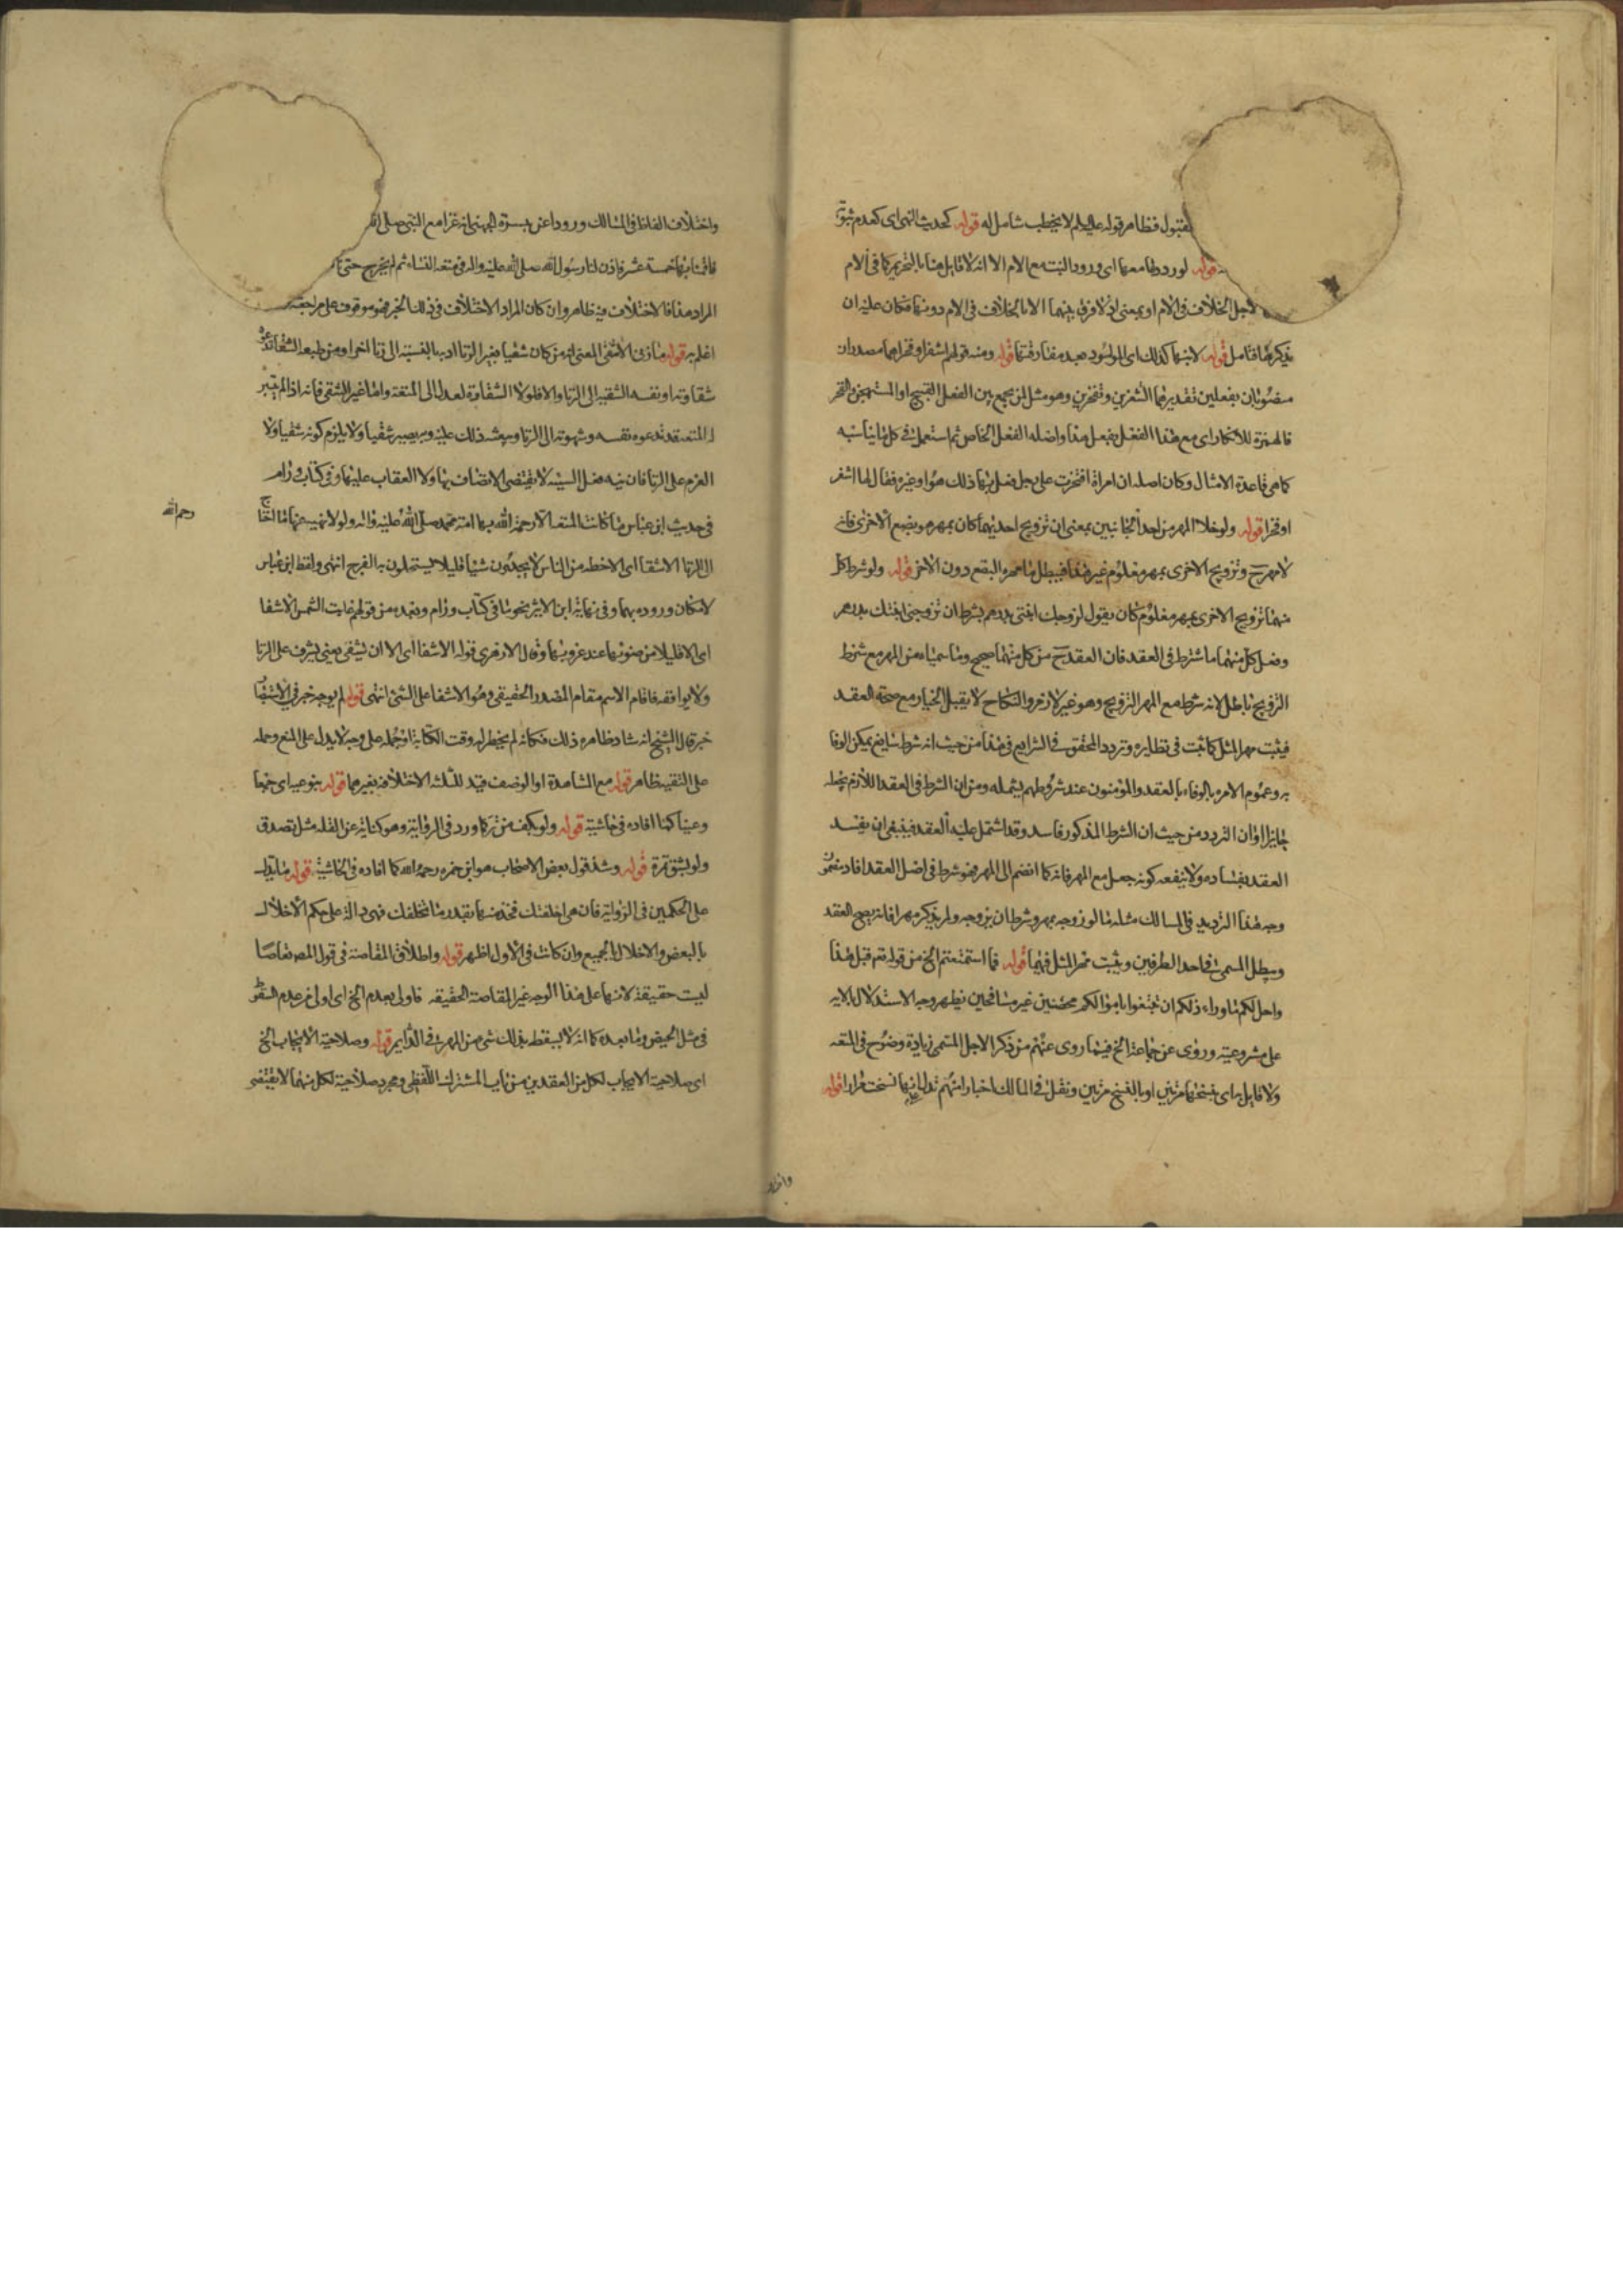 لقبول فظاهر قوله عليه لم لا يخطب شامل له قوله كحديث النهى اى كعدم ثبوت
قوله لورودها معها اى ورود البنت مع الام الا انه لا قايل هنا بالتحريم كما فى الام
لاجل الخلاف فى الام او بمعنى اذ لا فرق بينهما الا بالخلاف فى الام دونها فكان عليه ان
يذكرها فتامل قوله لابنها كذلك اى المولود بعد مفارقتها قوله ومنه قولهم اشغرا وفخرا هما مصدران
منصوبان بفعلين تقديرهما اتشغرين وتفخرين وهو مثل لمن يجمع بين الفعل القبيح او المستهجن والفخر
فالهمزة للانكار اى مع هذا الفعل يفعل هذا واصله الفعل الخاص ثم استعمل فى كل ما يناسبه
كما هى قاعدة الامثال وكان اصله ان امراة افتخرت على رجل فعل بها ذلك هو او غيره فقال لها اشغرا
او فخرا قوله ولو خلا المهر من احد الجانبين بمعنى ان تزويج احديهما كان بمهر هو بضع الاخرى فانه
لا مهر ح وتزويج الاخرى بمهر معلوم غير هذا فيبطل ما مهره البضع دون الاخر قوله ولو شرط كل
منهما تزويج الاخرى بمهر معلوم كان يقول زوجتك ابنتى بدرهم بشرط ان تزوجنى ابنتك بدرهم
وفعل كل منهما ما شرط فى العقد فان العقد ح من كل منهما صحيح وما سمياه من المهر مع شرط
التزويج باطل لانه شرط مع المهر التزويج وهو غير لازم والنكاح لا يقبل الخيار مع صحة العقد
فيثبت مهر المثل كما ثبت فى نظايره وتردد المحقق فى الشرايع فى هذا من حيث انه شرط سايغ يمكن الوفا
به وعموم الامر بالوفاء بالعقد والمؤمنون عند شروطهم يشمله ومن ان الشرط فى العقد اللازم يجعله
جايزا او ان التردد من حيث ان الشرط المذكور فاسد وقد اشتمل عليه العقد فينبغى ان يفسد
العقد بفساده ولا ينفعه كونه جعل مع المهر فانه كما انضم الى المهر فهو شرط فى اصل العقد
وجه هذا الترديد فى المسالك مثله ما لو زوجه بمهر وشرط ان يزوجه ولم يذكر مهرا فانه يصح العقد
ويبطل المسمى فى احد الطرفين ويثبت مهر المثل فيهما قوله فما استمتعتم الخ من قوله تعم قبل هذا
واحل لكم ما وراء ذلكم ان تبتغوا باموالكم محصنين غير مسافحين يظهر وجه الاستدلال بالايه
على مشروعيته وروى عن جماعة الخ فيما روى عنهم من ذكر الاجل المسمى زيادة وضوح فى المتعه
ولا قايل به اى بنسخها مرتين او بالنسخ مرتين ونقل فى المسالك اخبارا منهم تدل على انها نسخت مرارا قوله
واختلاف الفاظ فى المسالك وروداعن بسرة الجهنى انه غزا مع النبى صلى الله
فاقمنا بها خمسة عشر فاذن لنا رسول الله صلى الله عليه واله فى متعه النساء ثم لم يخرج حتى
المراد هذا فالاختلاف فيه ظاهر وان كان المراد الاختلاف فى ذلك الخبر فهو موقوف على مراجعة
اعلم به قوله ما زنى الا شقى المعنى انه من كان شقيا بغير الزنا اد بالنسبة الى زنا اخر او من طبعه الشقا تدعو
شقاوته او نفسه الشقية الى الزنا والا فلولا الشقاوة لعدل الى المتعة واما غير الشقى فانه اذا لم يتيسر
له المتعه قد تدعوه نفسه وشهوته الى الزنا ذلك عليه وبه يصير شقيا ولا يلزم كونه شقيا ولا
العزم على الزنا فان نية فعل السيئه لا يقتضى الاتصاف بها ولا العقاب عليها وفى كتاب ورام
رحمه الله
فى حديث ابن عباس ما كانت المتعه الا رحمة الله بها امة محمد صلى الله عليه واله ولولا نهيه عنها ما احتاج
الى الزنا الا شفا اى الا خطه من الناس لا يجدون شيئا قليلا يستحلون به الفرج انتهى ولفظ ابن عباس
لامكان وروده بهما وفى نهاية ابن الاثير نحو ما فى كتاب ورام وبعده من قولهم غابت الشمس الا شفا
اى الا قليلا من ضوئها عند غروبها وقال الازهرى قوله الا شفا اى الا ان يشفى يعنى يشرف على الزنا
ولا يواقعه فاقام الاسم مقام المصدر الحقيقى وهو الاشفا على الشئ انتهى قوله لم يوجد خبر فى الاستبصار
خبر قال الشيخ انه شاذ ظاهره ذلك فكانه لم يخطر له وقت الكتابة او حمله على وجه لا يدل على المنع وحمله
على التقية ظاهر قوله مع المشاهدة او الوصف قيد للثلثه الاختلاف بغيرهما قوله بنوعيه اى جمعا
وعينا كذا افاده فى حاشية قوله ولو بكف من بر كما ورد فى الرواية وهو كناية عن القلة مثل تصدق
ولو بشق تمرة قوله وشذ قول بعض الاصحاب هو ابن حمزه رحمه الله كما افاده فى الحاشية قوله ما يدل
على الحكمين فى الرواية فان هى اخلفتك فخذ منها بقدر ما تخلفك فهى دالة على حكم الاخلال
بالبعض والاخلال بالجميع وان كانت فى الاول اظهر قوله واطلاق المقاصة فى قول المص تقاصا
ليست حقيقة لانها على هذا الوجه غير المقاصة الحقيقيه فاولى بعدم الخ اى اولى من عدم السقوط
فى مثل الحيض وما بعده كما انه لا يسقط بذلك شئ من المهر فى الدايم قوله وصلاحية الايجاب الخ
اى صلاحية الايجاب لكل من العقدين من باب المشترك اللفظى ومجرد صلاحية لكل منهما لا يقتضى